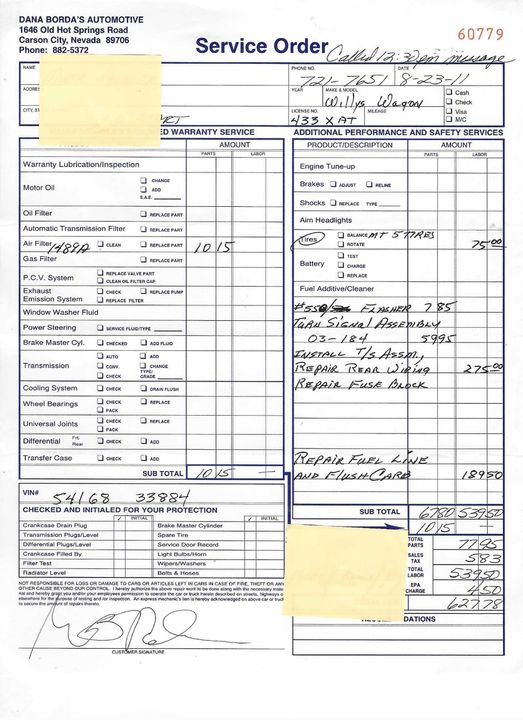 DANA BORDA'S AUTOMOTIVE
1646 Old Hot Springs Road
Carson City, Nevada 89706
Phone: 882-5372
60779
Service Order
Called 12:30pm message
NAME
PHONE NO. 721-7651
DATE 8-23-11
ADDRES
YEAR
MAKE & MODEL Willys Wagon
CITY, ST
LICENSE NO. 433 XAT
MILEAGE
☐ Cash
☐ Check
☐ Visa
☐ M/C
ED WARRANTY SERVICE
AMOUNT
PARTS LABOR
Warranty Lubrication/Inspection
Motor Oil ☐ CHANGE ☐ ADD S.A.E.
Oil Filter ☐ REPLACE PART
Automatic Transmission Filter ☐ REPLACE PART
Air Filter 1488A ☐ CLEAN ☐ REPLACE PART 10 15
Gas Filter ☐ REPLACE PART
P.C.V. System ☐ REPLACE VALVE PART ☐ CLEAN OIL FILTER CAP
Exhaust Emission System ☐ CHECK ☐ REPLACE PUMP ☐ REPLACE FILTER
Window Washer Fluid
Power Steering ☐ SERVICE FLUID/TYPE
Brake Master Cyl. ☐ CHECKED ☐ ADD FLUID
Transmission ☐ AUTO ☐ ADD ☐ CONV. ☐ CHANGE TYPE/GRADE ☐ CHECK
Cooling System ☐ CHECK ☐ DRAIN FLUSH
Wheel Bearings ☐ CHECK ☐ REPLACE ☐ PACK
Universal Joints ☐ CHECK ☐ REPLACE ☐ PACK
Differential Frt. Rear ☐ CHECK ☐ ADD
Transfer Case ☐ CHECK ☐ ADD
SUB TOTAL 10 15 —
VIN# 54168 33884
CHECKED AND INITIALED FOR YOUR PROTECTION
✓ INITIAL ✓ INITIAL
Crankcase Drain Plug Brake Master Cylinder
Transmission Plugs/Level Spare Tire
Differential Plugs/Level Service Door Record
Crankcase Filled By Light Bulbs/Horn
Filter Test Wipers/Washers
Radiator Level Belts & Hoses
NOT RESPONSIBLE FOR LOSS OR DAMAGE TO CARS OR ARTICLES LEFT IN CARS IN CASE OF FIRE, THEFT OR ANY
OTHER CAUSE BEYOND OUR CONTROL. I hereby authorize the above repair work to be done along with the necessary mate
rial and hereby grant you and/or your employees permission to operate the car or truck herein described on streets, highways o
elsewhere for the purpose of testing and /or inspection. An express mechanic's lien is hereby acknowledged on above car or truck
to secure the amount of repairs thereto.
CUSTOMER SIGNATURE
ADDITIONAL PERFORMANCE AND SAFETY SERVICES
PRODUCT/DESCRIPTION AMOUNT
PARTS LABOR
Engine Tune-up
Brakes ☐ ADJUST ☐ RELINE
Shocks ☐ REPLACE TYPE
Aim Headlights
Tires ☐ BALANCE ☐ ROTATE MT 5 TIRES 75 00
Battery ☐ TEST ☐ CHARGE ☐ REPLACE
Fuel Additive/Cleaner
#550 FLASHER 7 85
TURN SIGNAL ASSEMBLY
03-184 59 95
INSTALL T/S ASSM,
REPAIR REAR WIRING 275 00
REPAIR FUSE BLOCK
REPAIR FUEL LINE
AND FLUSH CARB 189 50
SUB TOTAL 67 80 539 50
10 15 —
TOTAL PARTS 77 95
SALES TAX 5 83
TOTAL LABOR 539 50
EPA CHARGE 4 50
627.78
DATIONS